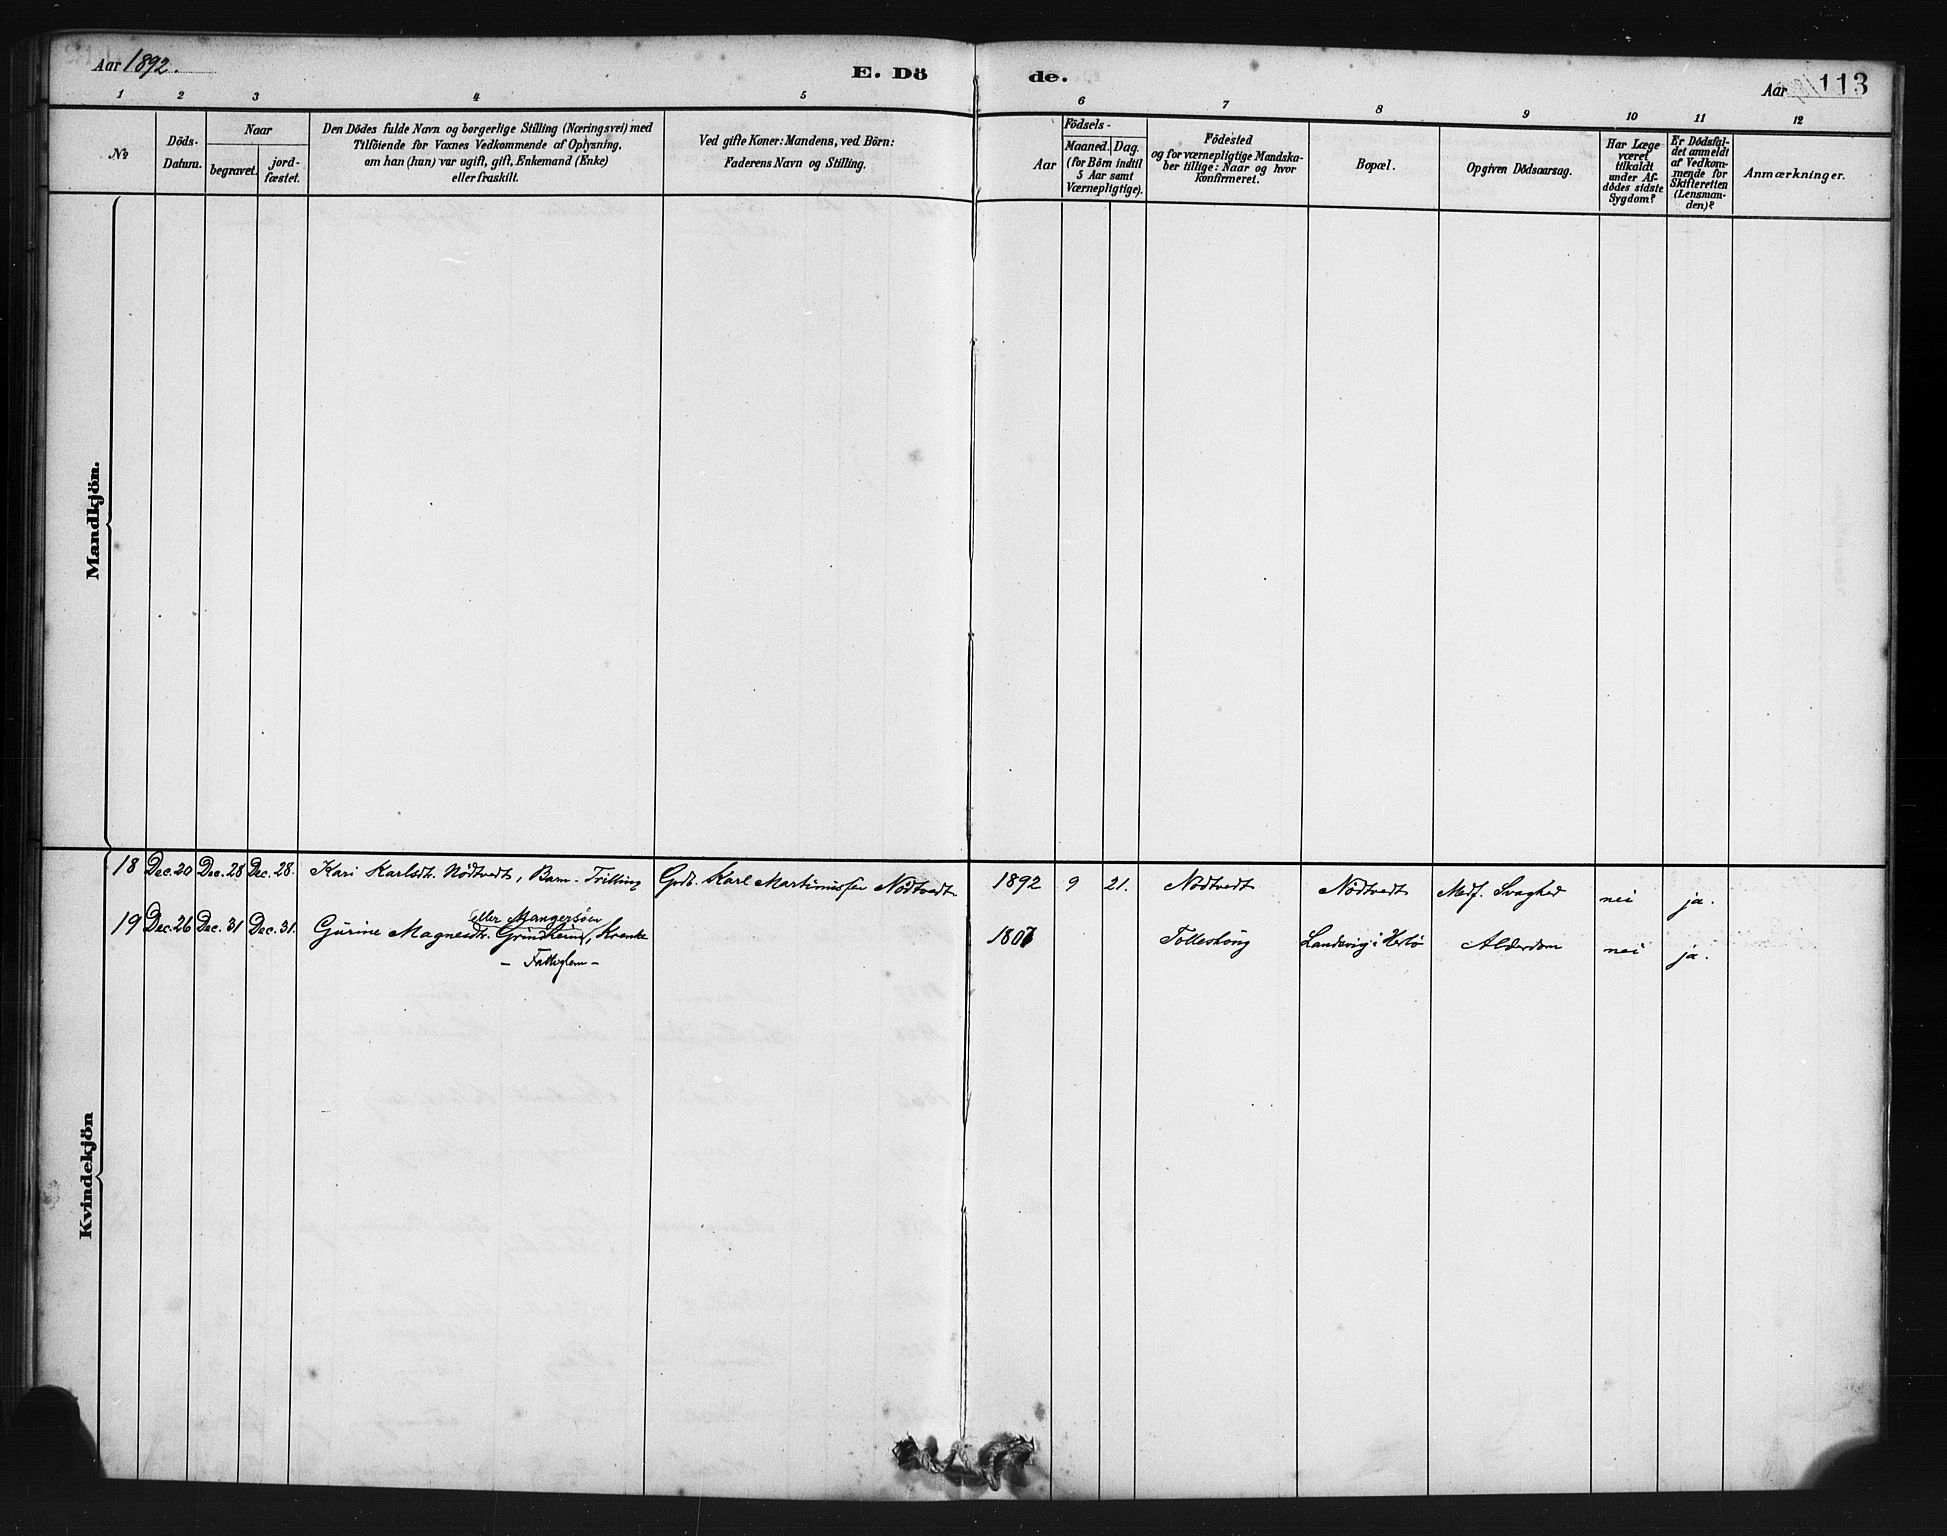 Aar 1892.
E. Dö
de.
Aar
113
1 2 3 4 5 6 7 8 9 10 11 12
No
Döds-
Datum.
Naar
begravet.
jord-
fæstet.
Den Dödes fulde Navn og borgerlige Stilling (Næringsvei) med
Tilföiende for Voxnes Vedkommende af Oplysning,
om han (hun) var ugift, gift, Enkemand (Enke)
eller fraskilt.
Ved gifte Koner: Mandens, ved Börn:
Faderens Navn og Stilling.
Födsels-
Aar
Maaned. Dag.
(for Börn indtil
5 Aar samt
Værnepligtige).
Födested
og for værnepligtige Mandska-
ber tillige: Naar og hvor
konfirmeret.
Bopæl.
Opgiven Dödsaarsag.
Har Læge
været
tilkaldt
under Af-
dödes sidste
Sygdom?
Er Dödsfal-
det anmeldt
af Vedkom-
mende for
Skifteretten
(Lensman-
den)?
Anmærkninger.
Mandkjön.
Kvindekjön
18 Dec. 20 Dec. 28 Dec. 28. Kari Karlsdtr. Nödtvedt, Barn - Trilling Gpdr. Karl Martinussen Nödtvedt 1892 9 21. Nödtvedt Nödtvedt Medf. Svaghed nei ja.
eller Mangersöen
19 Dec. 26 Dec. 31 Dec. 31. Gurine Magnesdtr. Grindheim, Kranke 1807 Landsvig i Herlö Alderdom nei ja.
- Fattiglem -